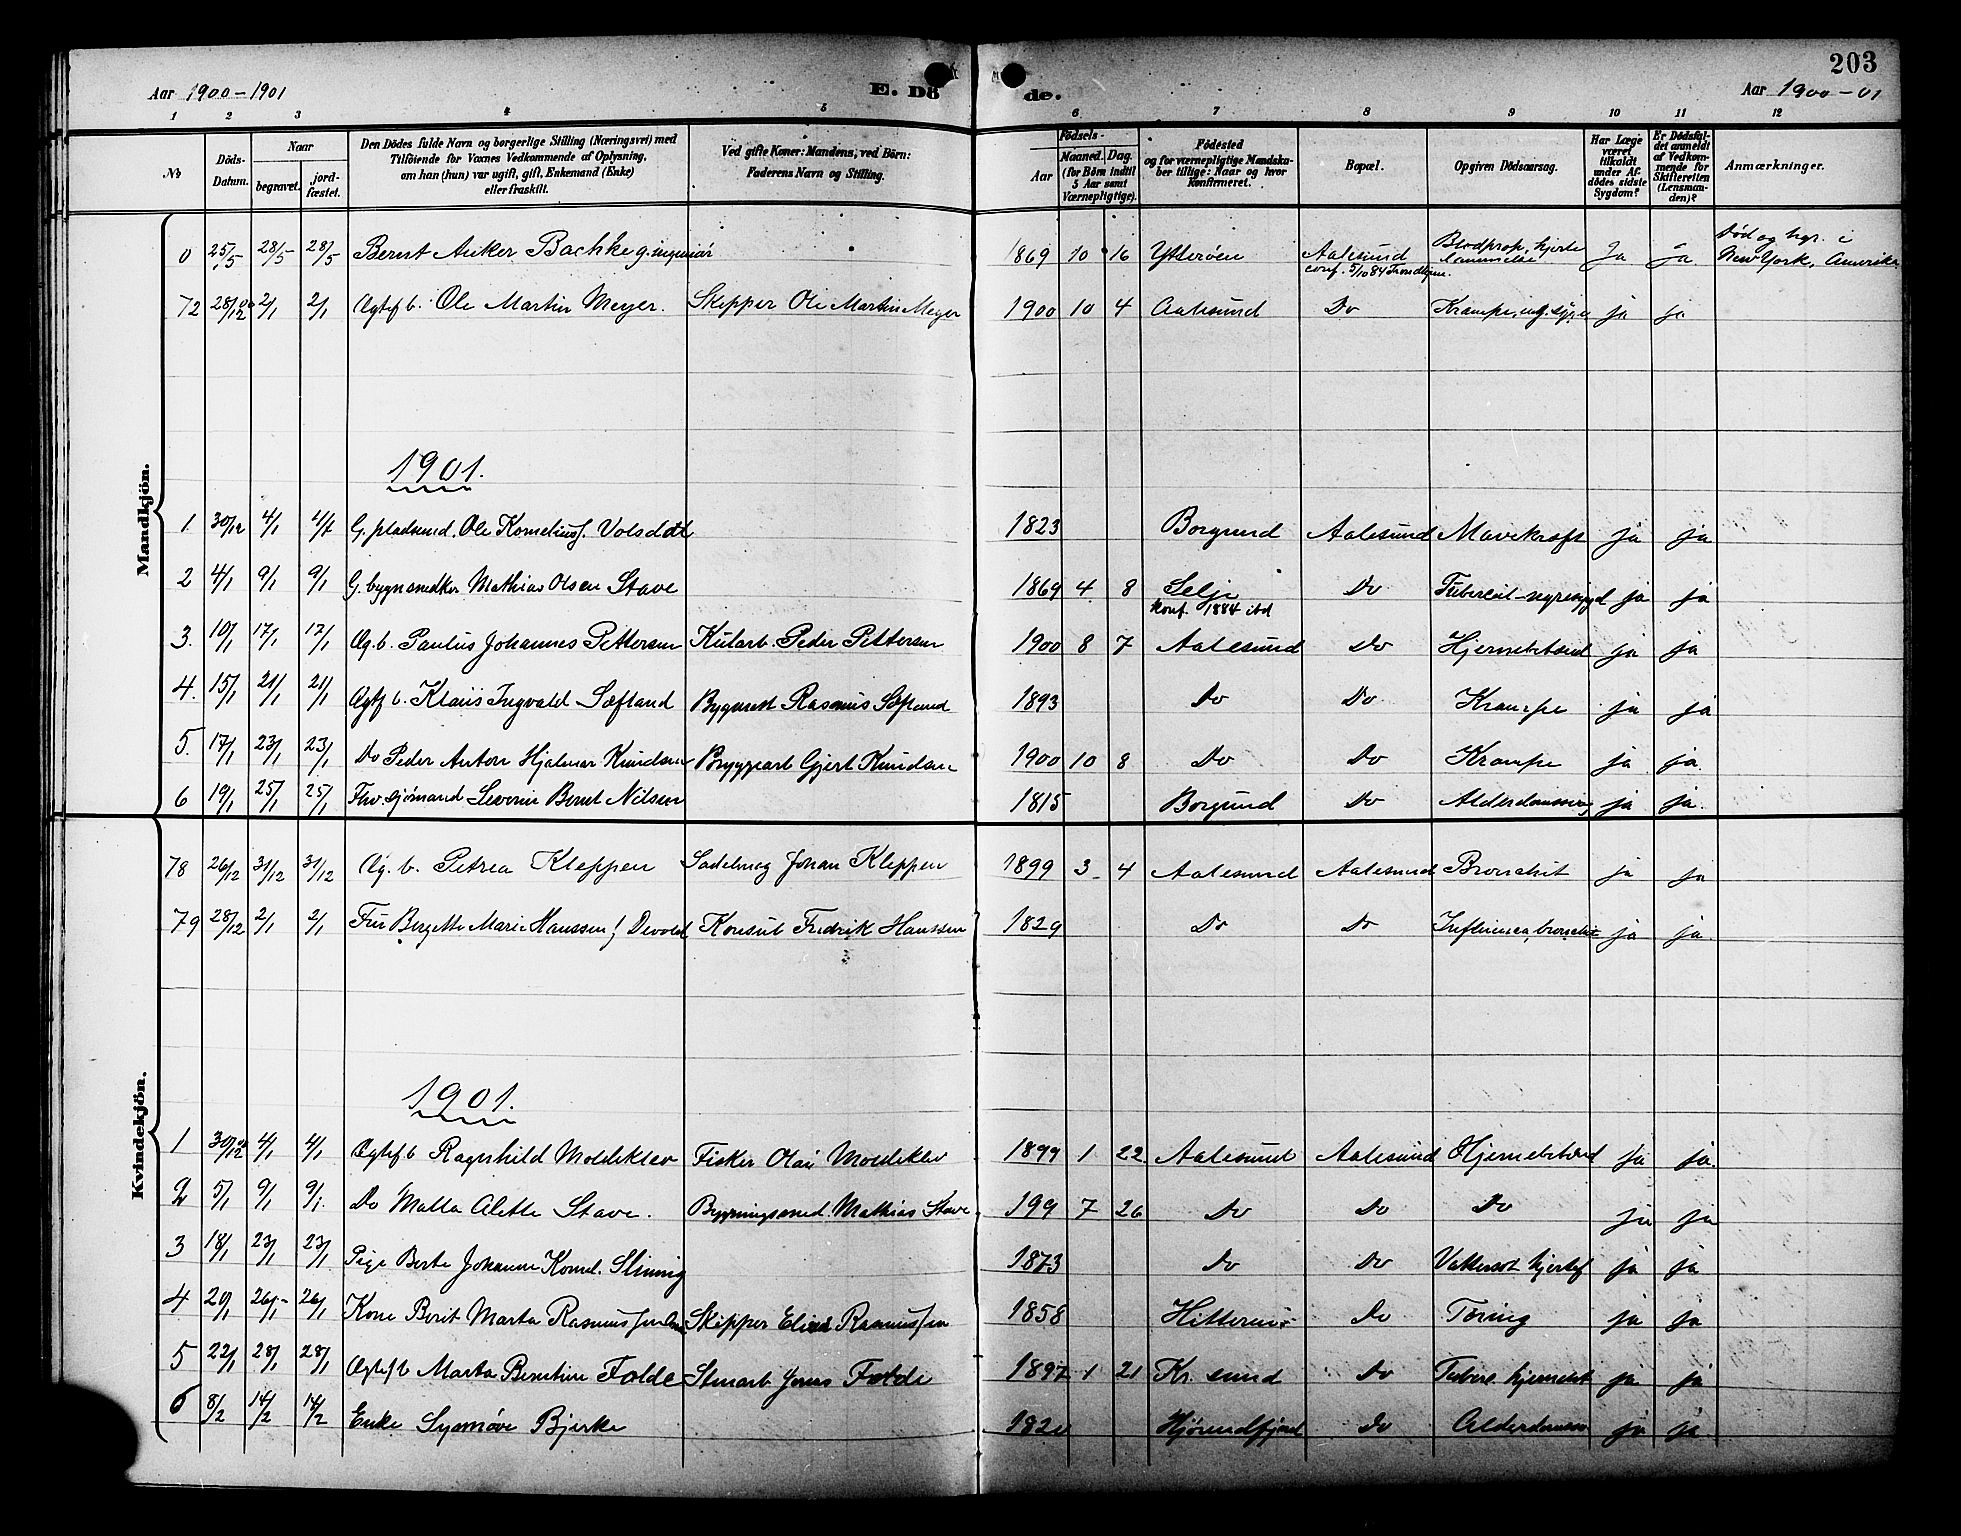 203
Aar 1900-1901 E. Dö de. Aar 1900-01
1 2 3 4 5 6 7 8 9 10 11 12
No
Döds-Datum.
Naar begravet. jord-fæstet.
Den Dödes fulde Navn og borgerlige Stilling (Næringsvei) med
Tilföiende for Voxnes Vedkommende af Oplysning,
om han (hun) var ugift, gift, Enkemand (Enke)
eller fraskilt.
Ved gifte Koner: Mandens, ved Börn:
Faderens Navn og Stilling.
Födsels-
Aar Maaned. Dag.
(for Börn indtil
5 Aar samt
Værnepligtige).
Födested
og for værnepligtige Mandska-
ber tillige: Naar og hvor
Konfirmeret.
Bopæl.
Opgiven Dödsaarsag.
Har Læge
været
tilkaldt
under Af-
dödes sidste
Sygdom?
Er Dödsfal-
det anmeldt
af Vedkom-
mende for
Skifteretten
(Lensman-
den)?
Anmærkninger.
Mandkjön.
0 25/5 28/5 28/5 Berent Anker Bachke g. ingeniör 1869 10 16 Ytterøen Aalesund conf. 5/10 84 Blodprop, hjerte lammelse Ja ja Död og begr. i New York, Amerika
72 28/12 2/1 2/1 Ægtef b. Ole Martin Meyer. Skipper Ole Martin Meyer 1900 10 4 Aalesund Do Krampe, ja ja
1901.
1 30/12 4/1 4/1 G. pladsmd. Ole Kornelius J. Volsdal 1823 Borgund Aalesund Mavekræft ja ja
2 4/1 9/1 9/1 G. bygnsnedker Mathias Olsen Stave 1869 4 8 Selje konf. 1884 ibd Do Tubercul. nyresygd ja ja
3. 10/1 17/1 17/1 Æg. b. Paulus Johannes Pettersen Kularb. Peder Pettersen 1900 8 7 Aalesund Do Hjernebetænd ja ja
4. 15/1 21/1 21/1 Ægtf b. Klaus Ingvald Sæfland Bygmest Rasmus Sæfland 1893 Do Do Krampe ja ja
5. 17/1 23/1 23/1 Do Peder Anton Hjalmar Knudsen Bryggearb Gjert Knudsen 1900 10 8 Do Do Krampe ja ja.
6 19/1 25/1 25/1 Fhv. sjömand Severin Bernt Nilsen 1815 Borgund Do Alderdomssvag ja ja.
Kvindekjön.
78 26/12 31/12 31/12 Æg. b. Petrea Kleppen Sadelmag Johan Kleppen 1899 3 4 Aalesund Aalesund Bronchit ja ja
79 28/12 2/1 2/1 Fru Bergette Marie Hanssen f. Devold Konsul Fredrik Hanssen 1829 Do Do Influenza, bronchit ja ja.
1901.
1 30/12 4/1 4/1 Ægtef b Ragnhild Moldeklev Fisker Olai Moldeklev 1899 1 22 Aalesund Aalesund Hjernebetænd ja ja.
2 5/1 9/1 9/1. Do Malla Alette Stave. Bygningssned. Mathias Stave 199 7 26 Do Do Do ja ja
3 18/1 23/1 23/1 Pige Berte Johanne Kornel. Slinning 1873 Do Do Vattersot hjertef ja ja
4 20/1 26/1 26/1 Kone Berit Marta Rasmussen Skipper Elias Rasmussen 1858 Hitteren Do Tæring ja ja
5 22/1 28/1 28/1 Ægtef b Marta Berntine Folde Stenarb. Jens Folde 1897 1 21 Kr. sund Do Tuberc. hjernebet ja ja
6 8/2 14/2 14/2 Enke Synnöve Bjerke 182 Hjörundfjord Do Alderdomssv ja ja.